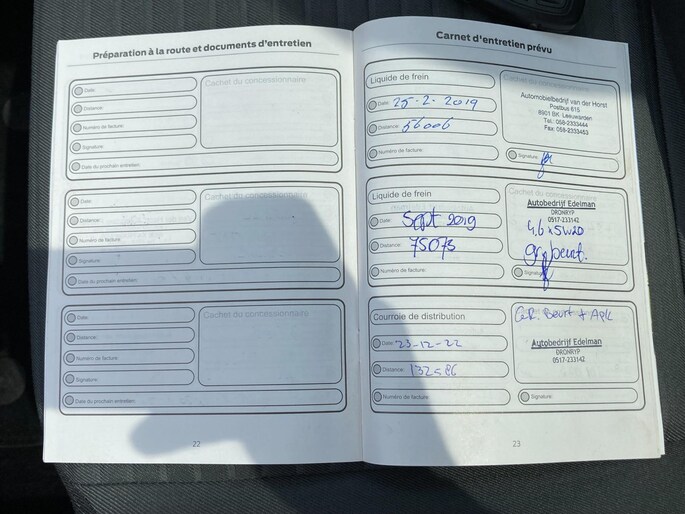 Préparation à la route et documents d'entretien
Date:
Cachet du concessionnaire
Distance:
Numéro de facture:
Signature:
Date du prochain entretien:
Date:
Cachet du concessionnaire
Distance:
Numéro de facture:
Signature:
Date du prochain entretien:
Date:
Cachet du concessionnaire
Distance:
Numéro de facture:
Signature:
Date du prochain entretien:
22
Carnet d'entretien prévu
Liquide de frein
Date: 25-2-2019
Distance: 56006
Numéro de facture:
Cachet du concessionnaire
Automobielbedrijf van der Horst
Postbus 615
8901 BK Leeuwarden
Tel.: 058-2333444
Fax: 058-2333453
Signature:
Liquide de frein
Date: Sept 2019
Distance: 75073
Numéro de facture:
Cachet du concessionnaire
Autobedrijf Edelman
DRONRYP
0517-233142
4,6 x 5W20
gr. beurt.
Signature:
Courroie de distribution
Date: 23-12-22
Distance:
Numéro de facture:
GR. Beurt + APK
Autobedrijf Edelman
DRONRYP
0517-233142
Signature:
23